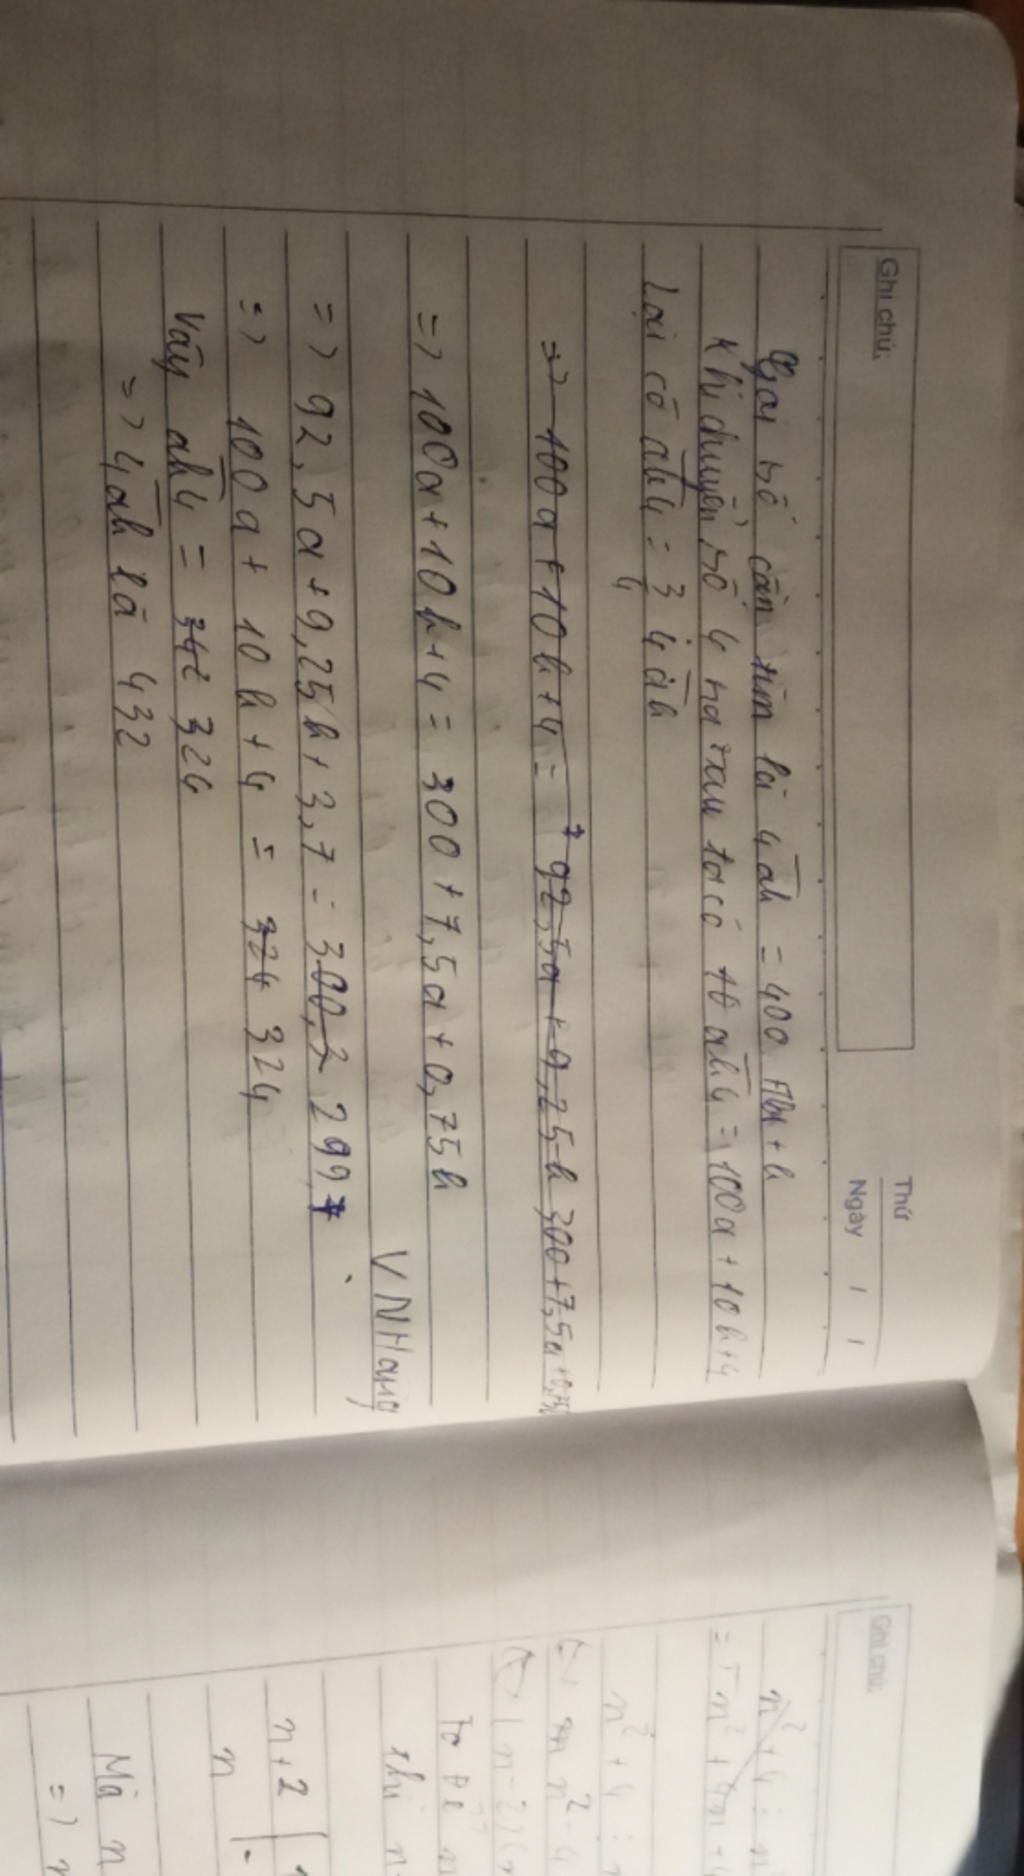 Ghi chú:
Thứ
Ngày / /
Gọi số cần tìm là 4ab = 400 + 10a + b
Khi chuyển số 4 ra sau ta có số ab4 = 100a + 10b+4
Lại có ab4 = 3/4 4ab
=> 100a + 10b+4 = 92,5a + 9,25b 300+7,5a+0,75b
=> 100a+10b+4 = 300+7,5a+0,75b
VNHang
=> 92,5a+9,25b+3,7 = 300,3 299,7
=> 100a + 10b+4 = 324 324
Vây ab4 = 342 324
=> 4ab là 432
Ghi chú:
n²+4 : n
n² + 4 :
n² - 4
(n-2)(n
n+2
n
Mà n
=> n